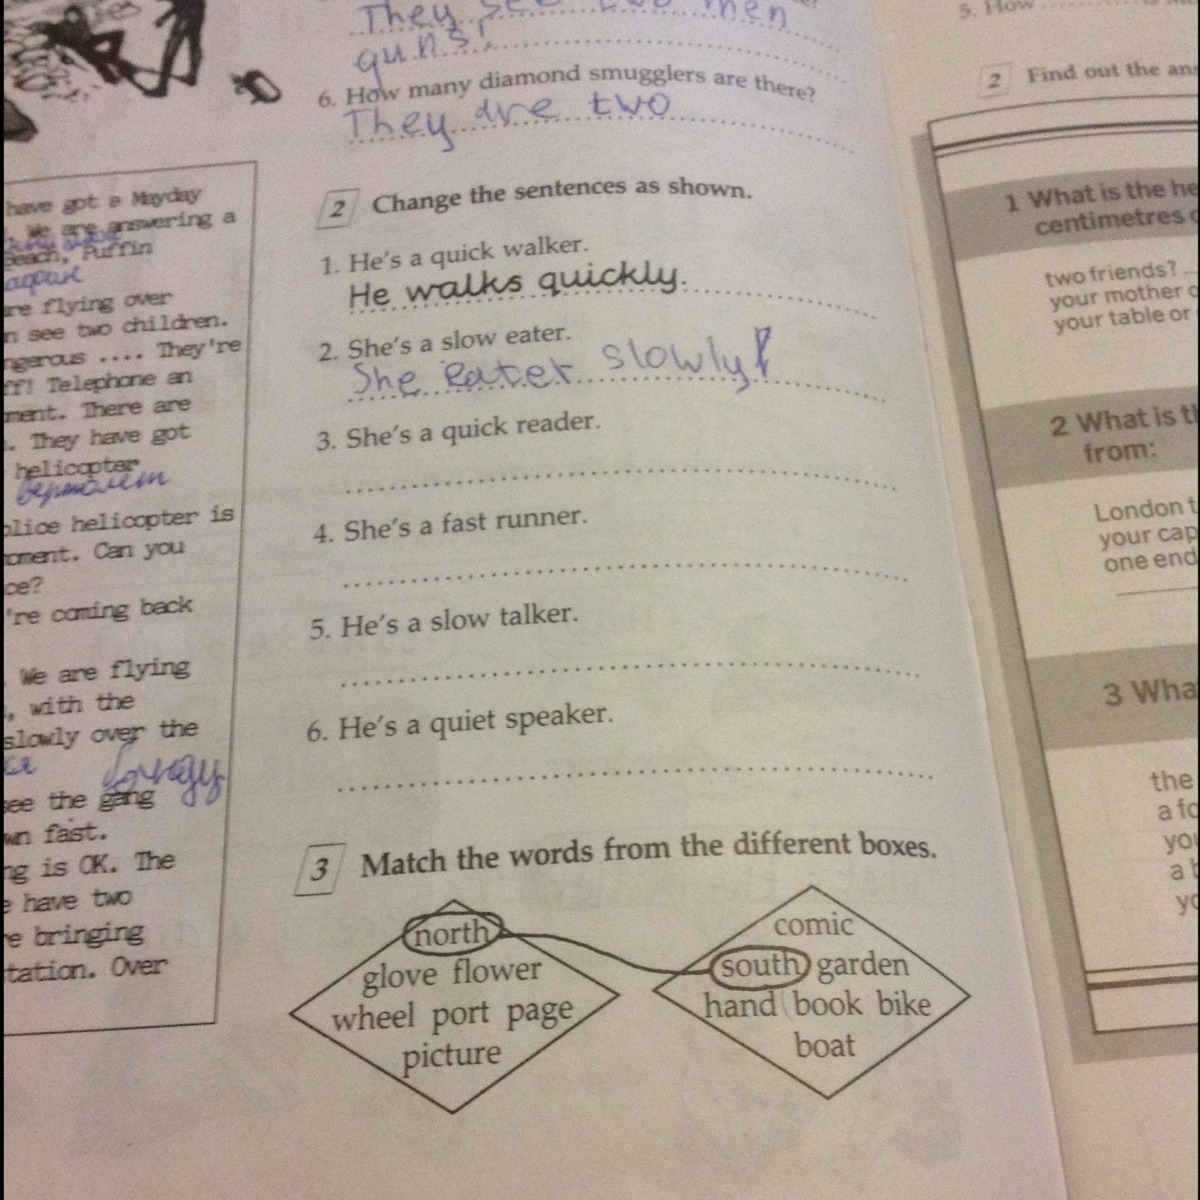 They see two men
guns!
6. How many diamond smugglers are there?
They are two
2 Change the sentences as shown.
1. He's a quick walker.
He walks quickly.
2. She's a slow eater.
She eater slowly
3. She's a quick reader.
4. She's a fast runner.
5. He's a slow talker.
6. He's a quiet speaker.
3 Match the words from the different boxes.
north
glove flower
wheel port page
picture
comic
south garden
hand book bike
boat
have got a Mayday
. We are answering a
Beach, Puffin
are flying over
see two children.
.... They're
Telephone an
There are
. They have got
helicopter
вертолет
helicopter is
Can you
're coming back
We are flying
, with the
slowly over the
see the gang
fast.
is OK. The
have two
bringing
Over
5. How
2 Find out the
1 What is the
centimetres
two friends?
your mother
your table or
2 What is
from:
London
your
one end
3
the
a